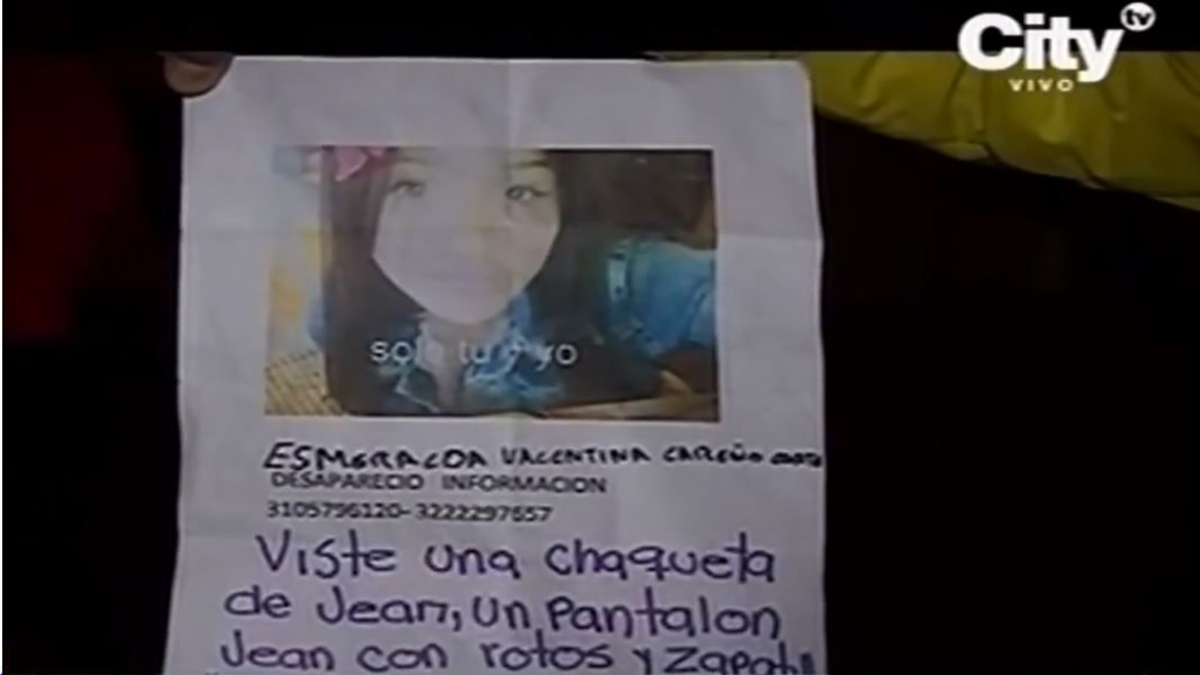 City tv
VIVO
solo tu y yo
ESMERALDA VALENTINA CAREÑO
DESAPARECIO INFORMACION
3105796120-3222297657
Viste una chaqueta
de Jean, un pantalon
Jean con rotos y